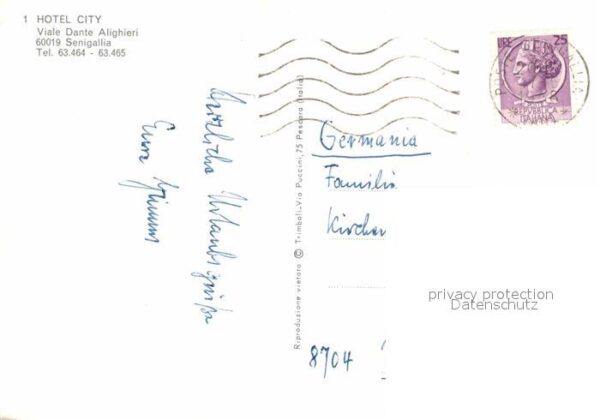 1 HOTEL CITY
Viale Dante Alighieri
60019 Senigallia
Tel. 63.464 - 63.465
LIRE 25
REPUBBLICA
ITALIANA
Herzliche Urlaubsgrüße
Eure
Riproduzione vietata © Trimboli-Via Puccini,75 Pescara (Italia)
Germania
Familie
8704
privacy protection
Datenschutz